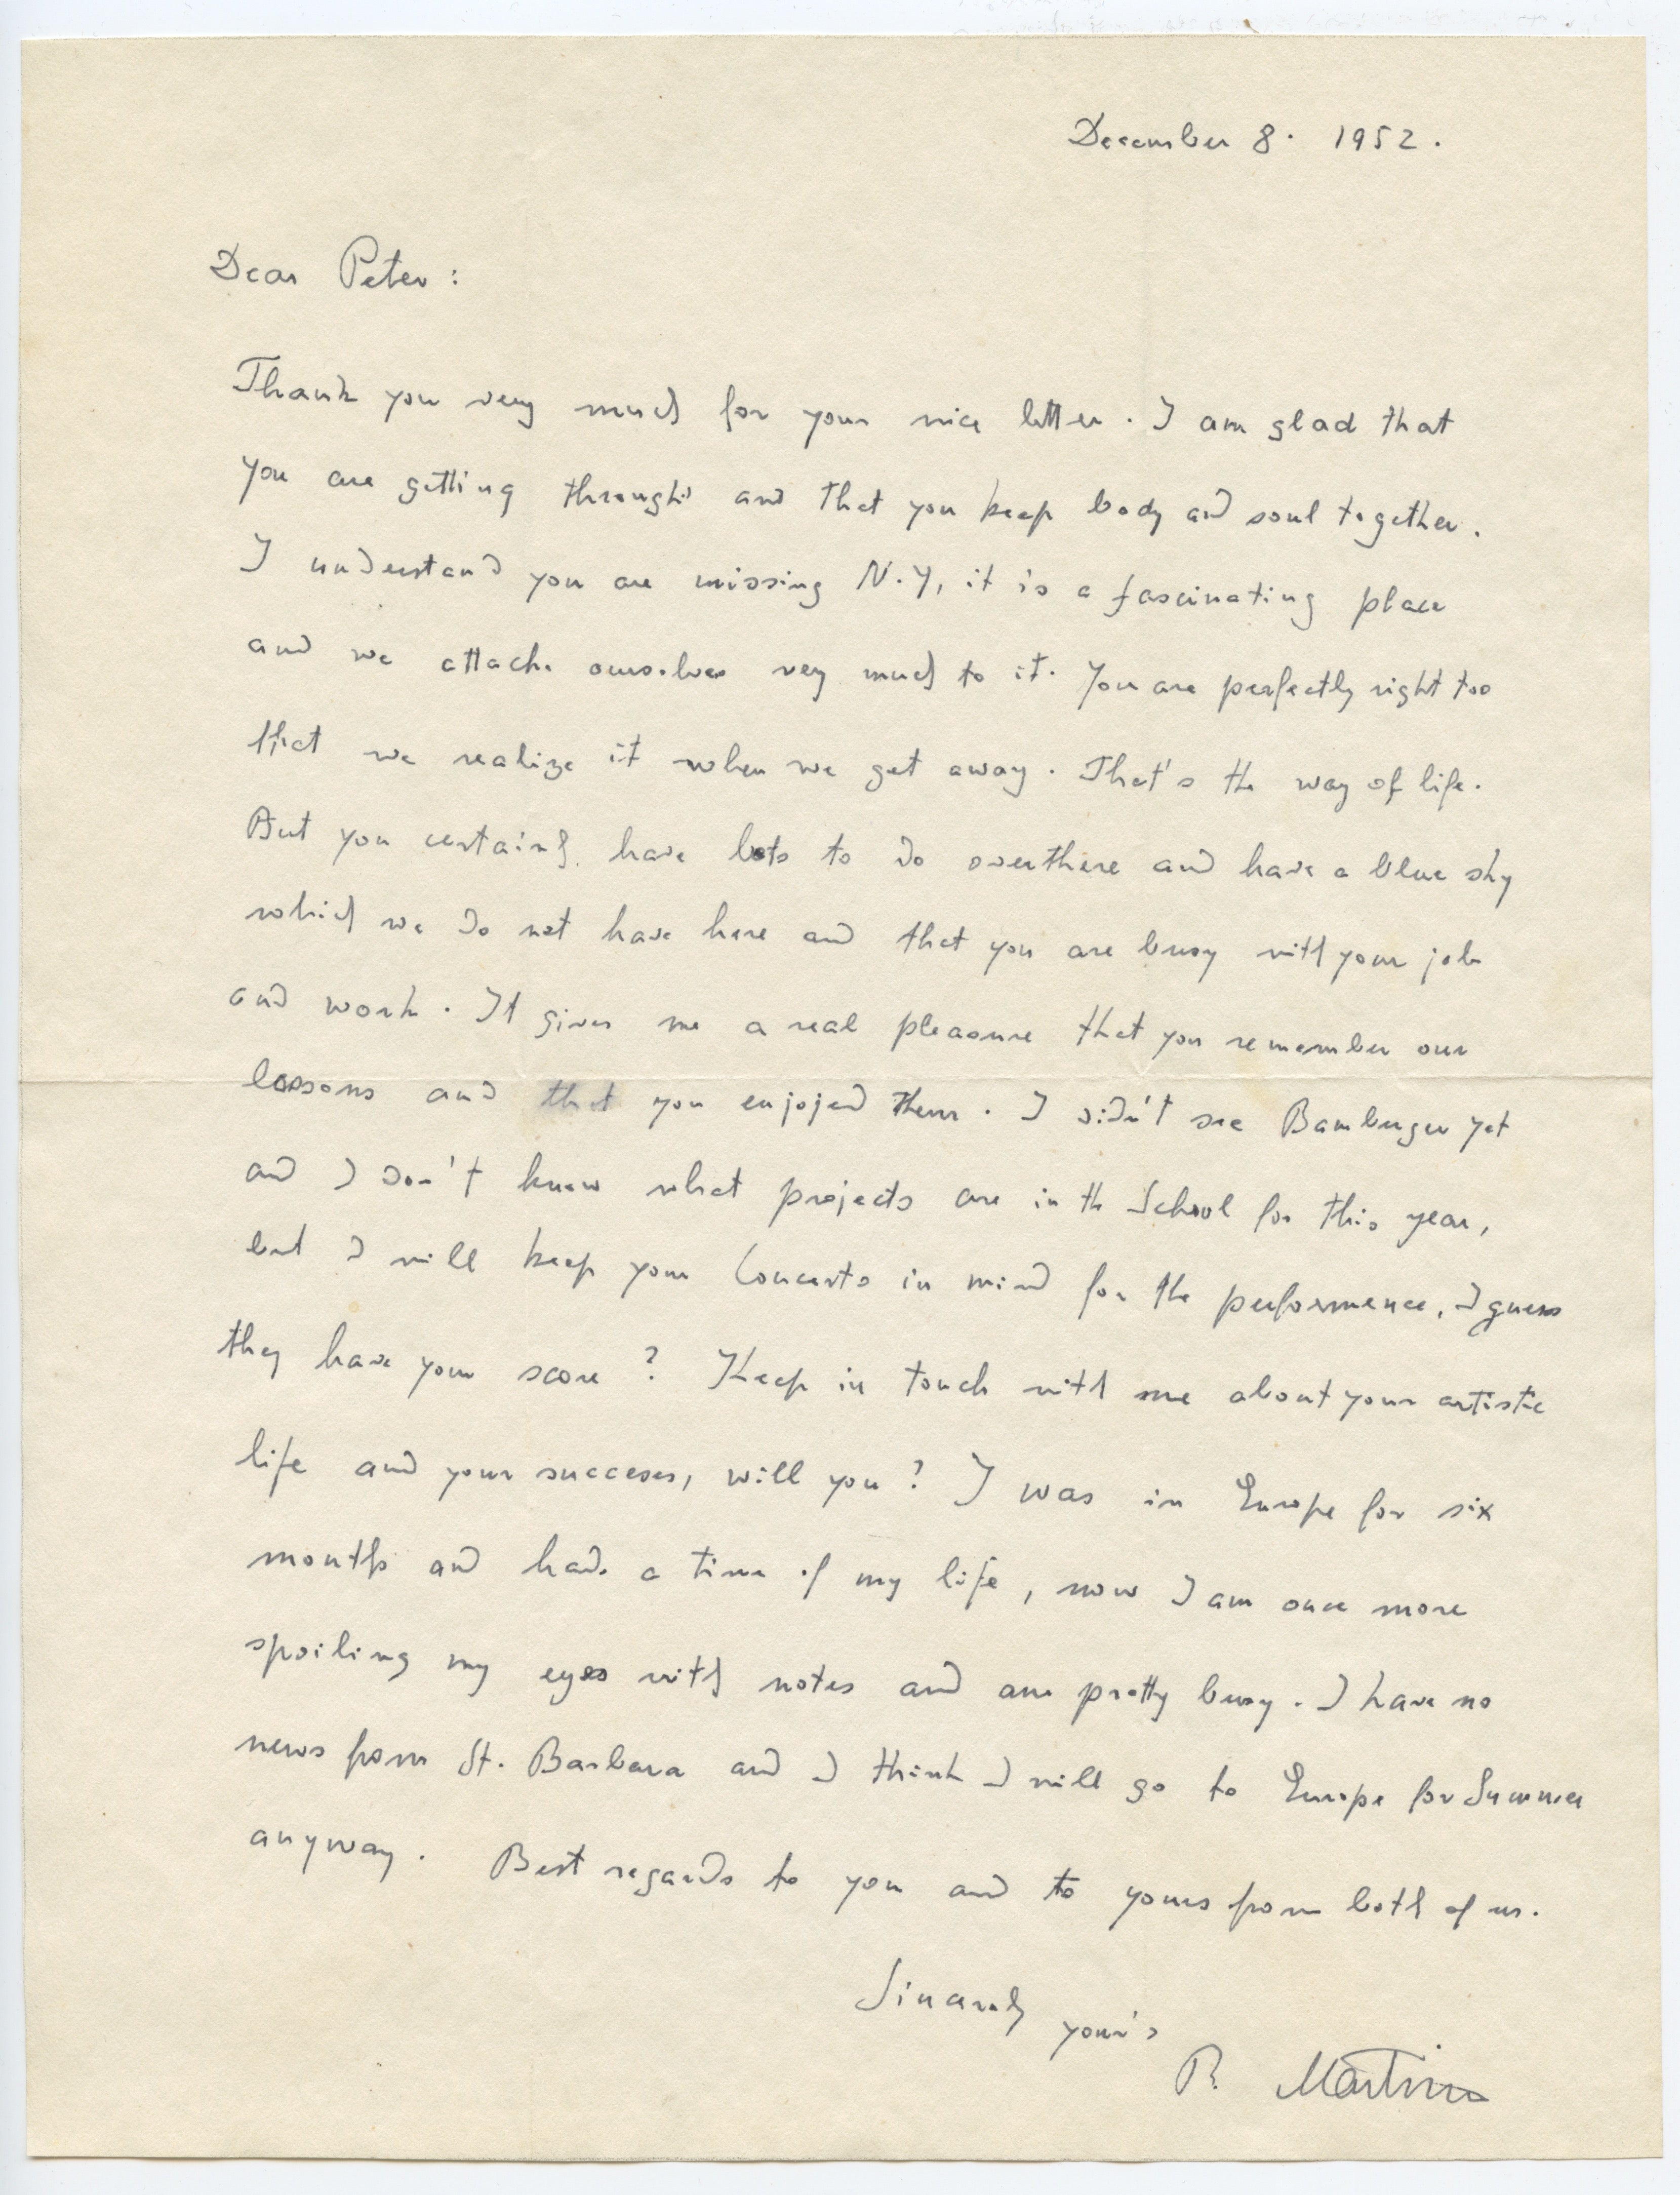 December 8. 1952.
Dear Peter:
Thank you very much for your nice letter. I am glad that
you are getting through and that you keep body and soul together.
I understand you are missing N.Y, it is a fascinating place
and we attach ourselves very much to it. You are perfectly right too
that we realize it when we get away. That's the way of life.
But you certainly have lots to do overthere and have a blue sky
which we do not have here and that you are busy with your job
and work. It gives me a real pleasure that you remember our
lessons and that you enjojed them. I didn't see Bamberger yet
and I don't know what projects are in the School for this year,
but I will keep your Concerto in mind for the performence, I guess
they have your score? Keep in touch with me about your artistic
life and your succeses, will you? I was in Europe for six
months and had a time of my life, now I am once more
spoiling my eyes with notes and am pretty busy. I have no
news from St. Barbara and I think I will go to Europe for Summer
anyway. Best regards to you and to yours from both of us.
Sincerely
your's
B. Martinu